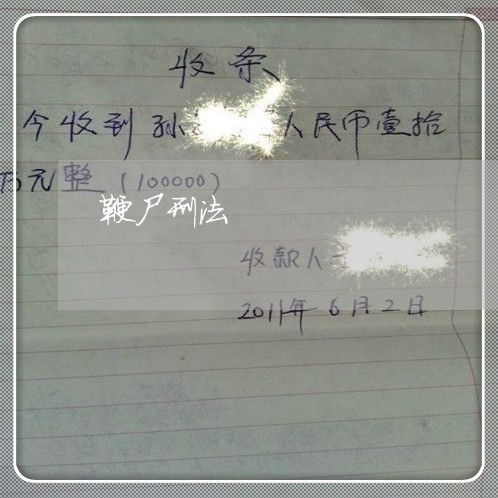 收条
今收到孙 人民币壹拾
万元整（100000）
鞭尸刑法
收款人
2011年6月2日